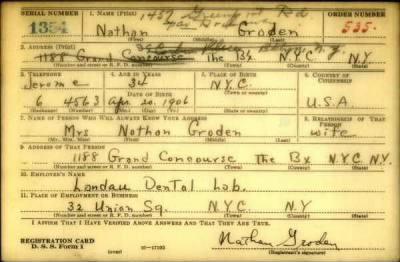 SERIAL NUMBER 1. NAME (Print) 1457 Rd ORDER NUMBER
1354 Nathan Groden 535.
(First) (Middle) (Last)
2. ADDRESS (Print) N.Y.
1188 Grand Concourse The Bx. N.Y.C N.Y.
(Number and street or R. F. D. number) (Town) (County) (State)
3. TELEPHONE 4. AGE IN YEARS 5. PLACE OF BIRTH 6. COUNTRY OF CITIZENSHIP
Jerome 34 N.Y.C.
DATE OF BIRTH (Town or county)
6 4563 Apr. 20. 1906 U.S.A.
(Exchange) (Number) (Mo.) (Day) (Yr.) (State or country)
7. NAME OF PERSON WHO WILL ALWAYS KNOW YOUR ADDRESS 8. RELATIONSHIP OF THAT PERSON
Mrs Nathan Groden wife
(Mr., Mrs., Miss) (First) (Middle) (Last)
9. ADDRESS OF THAT PERSON
1188 Grand Concourse The Bx N.Y.C. N.Y.
(Number and street or R. F. D. number) (Town) (County) (State)
10. EMPLOYER'S NAME
Landau Dental Lab.
11. PLACE OF EMPLOYMENT OR BUSINESS
32 Union Sq. N.Y.C. N.Y
(Number and street or R. F. D. number) (Town) (County) (State)
I AFFIRM THAT I HAVE VERIFIED ABOVE ANSWERS AND THAT THEY ARE TRUE.
REGISTRATION CARD
D. S. S. Form 1 (over) 16—17105 Nathan Groden
(Registrant's signature)